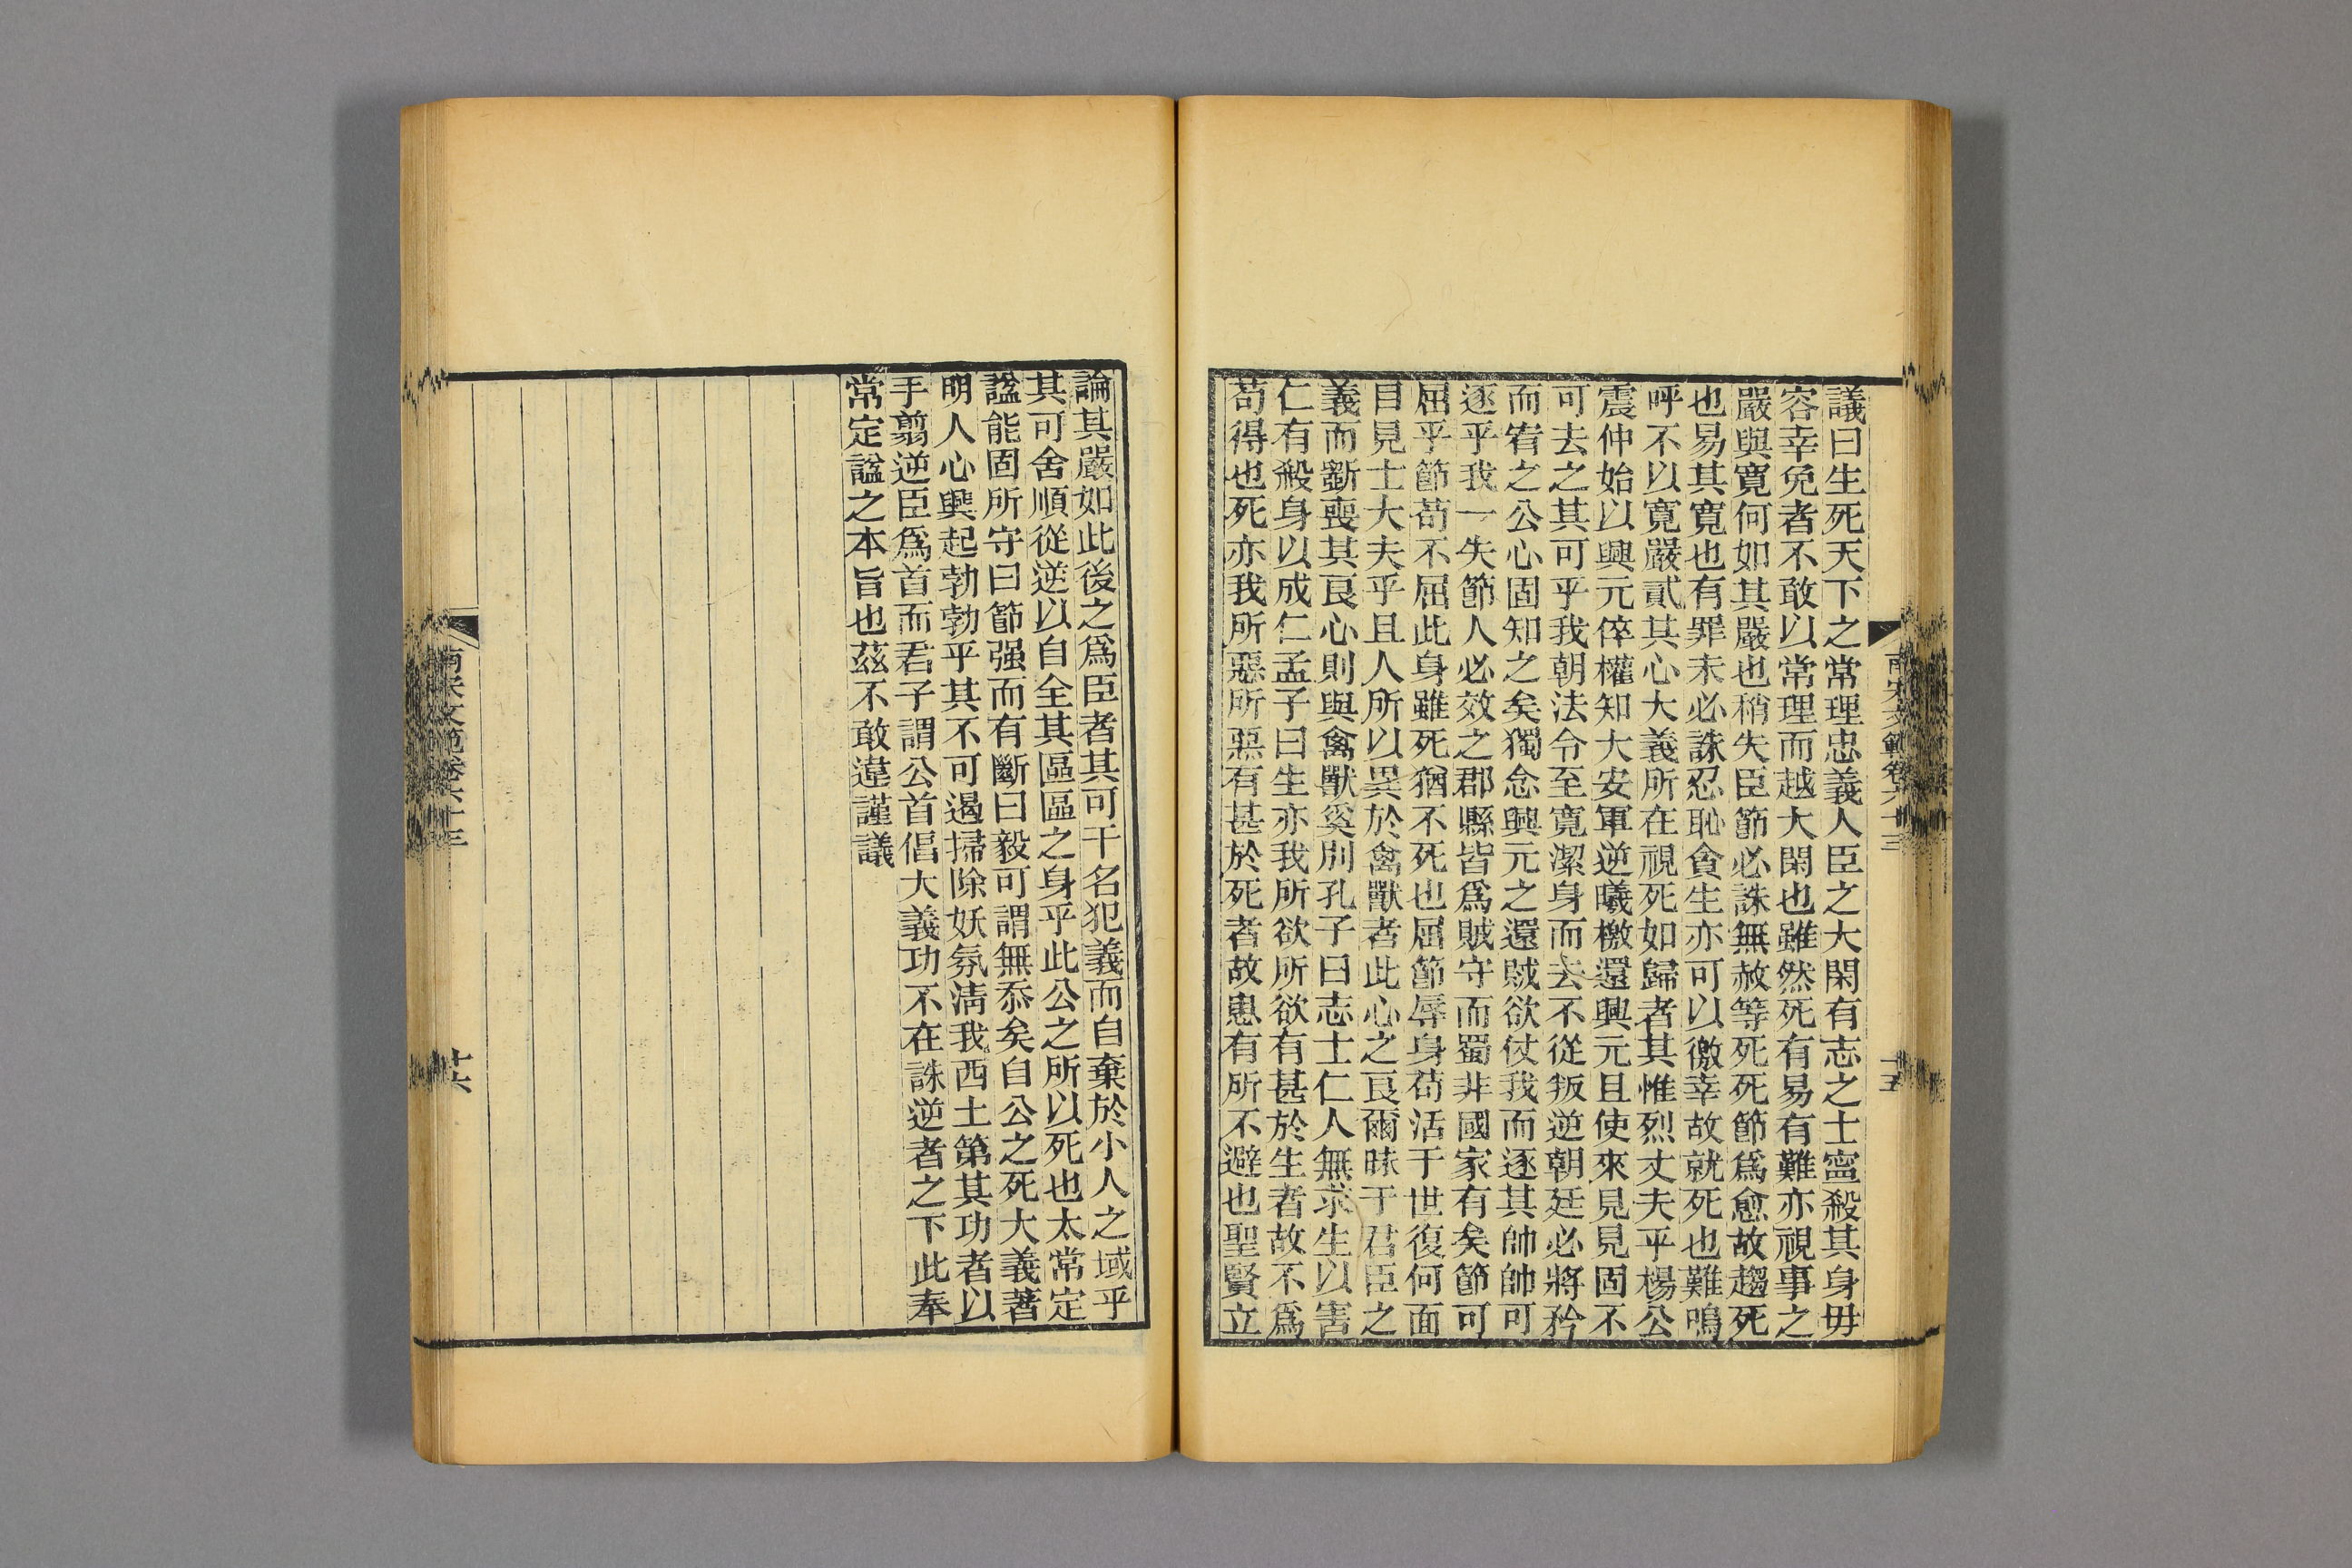 議曰生死天下之常理忠義人臣之大閑有志之士寧殺其身毋
容幸免者不敢以常理而越大閑也雖然死有易有難亦視事之
嚴與寛何如其嚴也稍失臣節必誅無赦等死死節爲愈故趨死
也易其寛也有罪未必誅忍恥貪生亦可以徼幸故就死也難鳴
呼不以寛嚴貳其心大義所在視死如歸者其惟烈丈夫乎楊公
震仲始以興元倅權知大安軍逆曦檄還興元且使來見見固不
可去之其可乎我朝法令至寛潔身而去不從叛逆朝廷必將矜
而宥之公心固知之矣獨念興元之還賊欲仗我而逐其帥帥可
逐乎我一失節人必效之郡縣皆爲賊守而蜀非國家有矣節可
屈乎節苟不屈此身雖死猶不死也屈節辱身苟活于世復何面
目見士大夫乎且人所以異於禽獸者此心之良爾昧于君臣之
義而斵喪其良心則與禽獸奚別孔子曰志士仁人無求生以害
仁有殺身以成仁孟子曰生亦我所欲所欲有甚於生者故不爲
苟得也死亦我所惡所惡有甚於死者故患有所不避也聖賢立
南宋文範卷六十三
十五
論其嚴如此後之爲臣者其可干名犯義而自棄於小人之域乎
其可舍順從逆以自全其區區之身乎此公之所以死也太常定
諡能固所守曰節强而有斷曰毅可謂無忝矣自公之死大義著
明人心興起勃勃乎其不可遏掃除妖氛淸我西土第其功者以
手翦逆臣爲首而君子謂公首倡大義功不在誅逆者之下此奉
常定諡之本旨也茲不敢違謹議
南宋文範卷六十三
十六